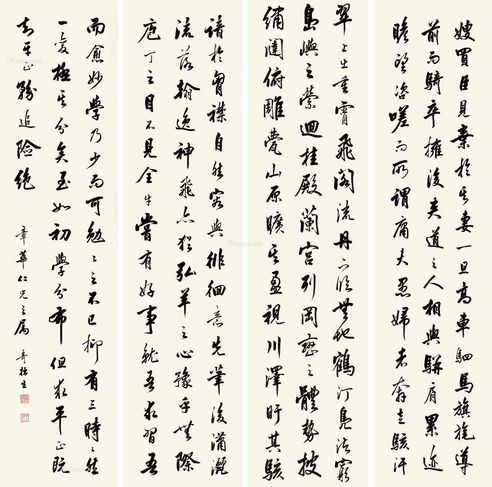 嫂買臣見棄於其妻一旦高車駟馬旗旄導
前而騎卒擁後夾道之人相與駢肩累迹
瞻望咨嗟而所謂庸夫愚婦者奔走駭汗
翠上出重霄飛閣流丹下臨無地鶴汀鳧渚窮
島嶼之縈迴桂殿蘭宮列岡巒之體勢披
繡闥俯雕甍山原曠其盈視川澤盱其駭
諳於胸襟自然容與徘徊意先筆後瀟灑
流落翰逸神飛亦猶弘羊之心豫乎無際
庖丁之目不見全牛嘗有好事就吾求習吾
而愈妙學乃少而可勉〻之不已抑有三時〻然
一變極其分矣至如初學分布但求平正既
知平正務追險絕
章華仁兄之屬